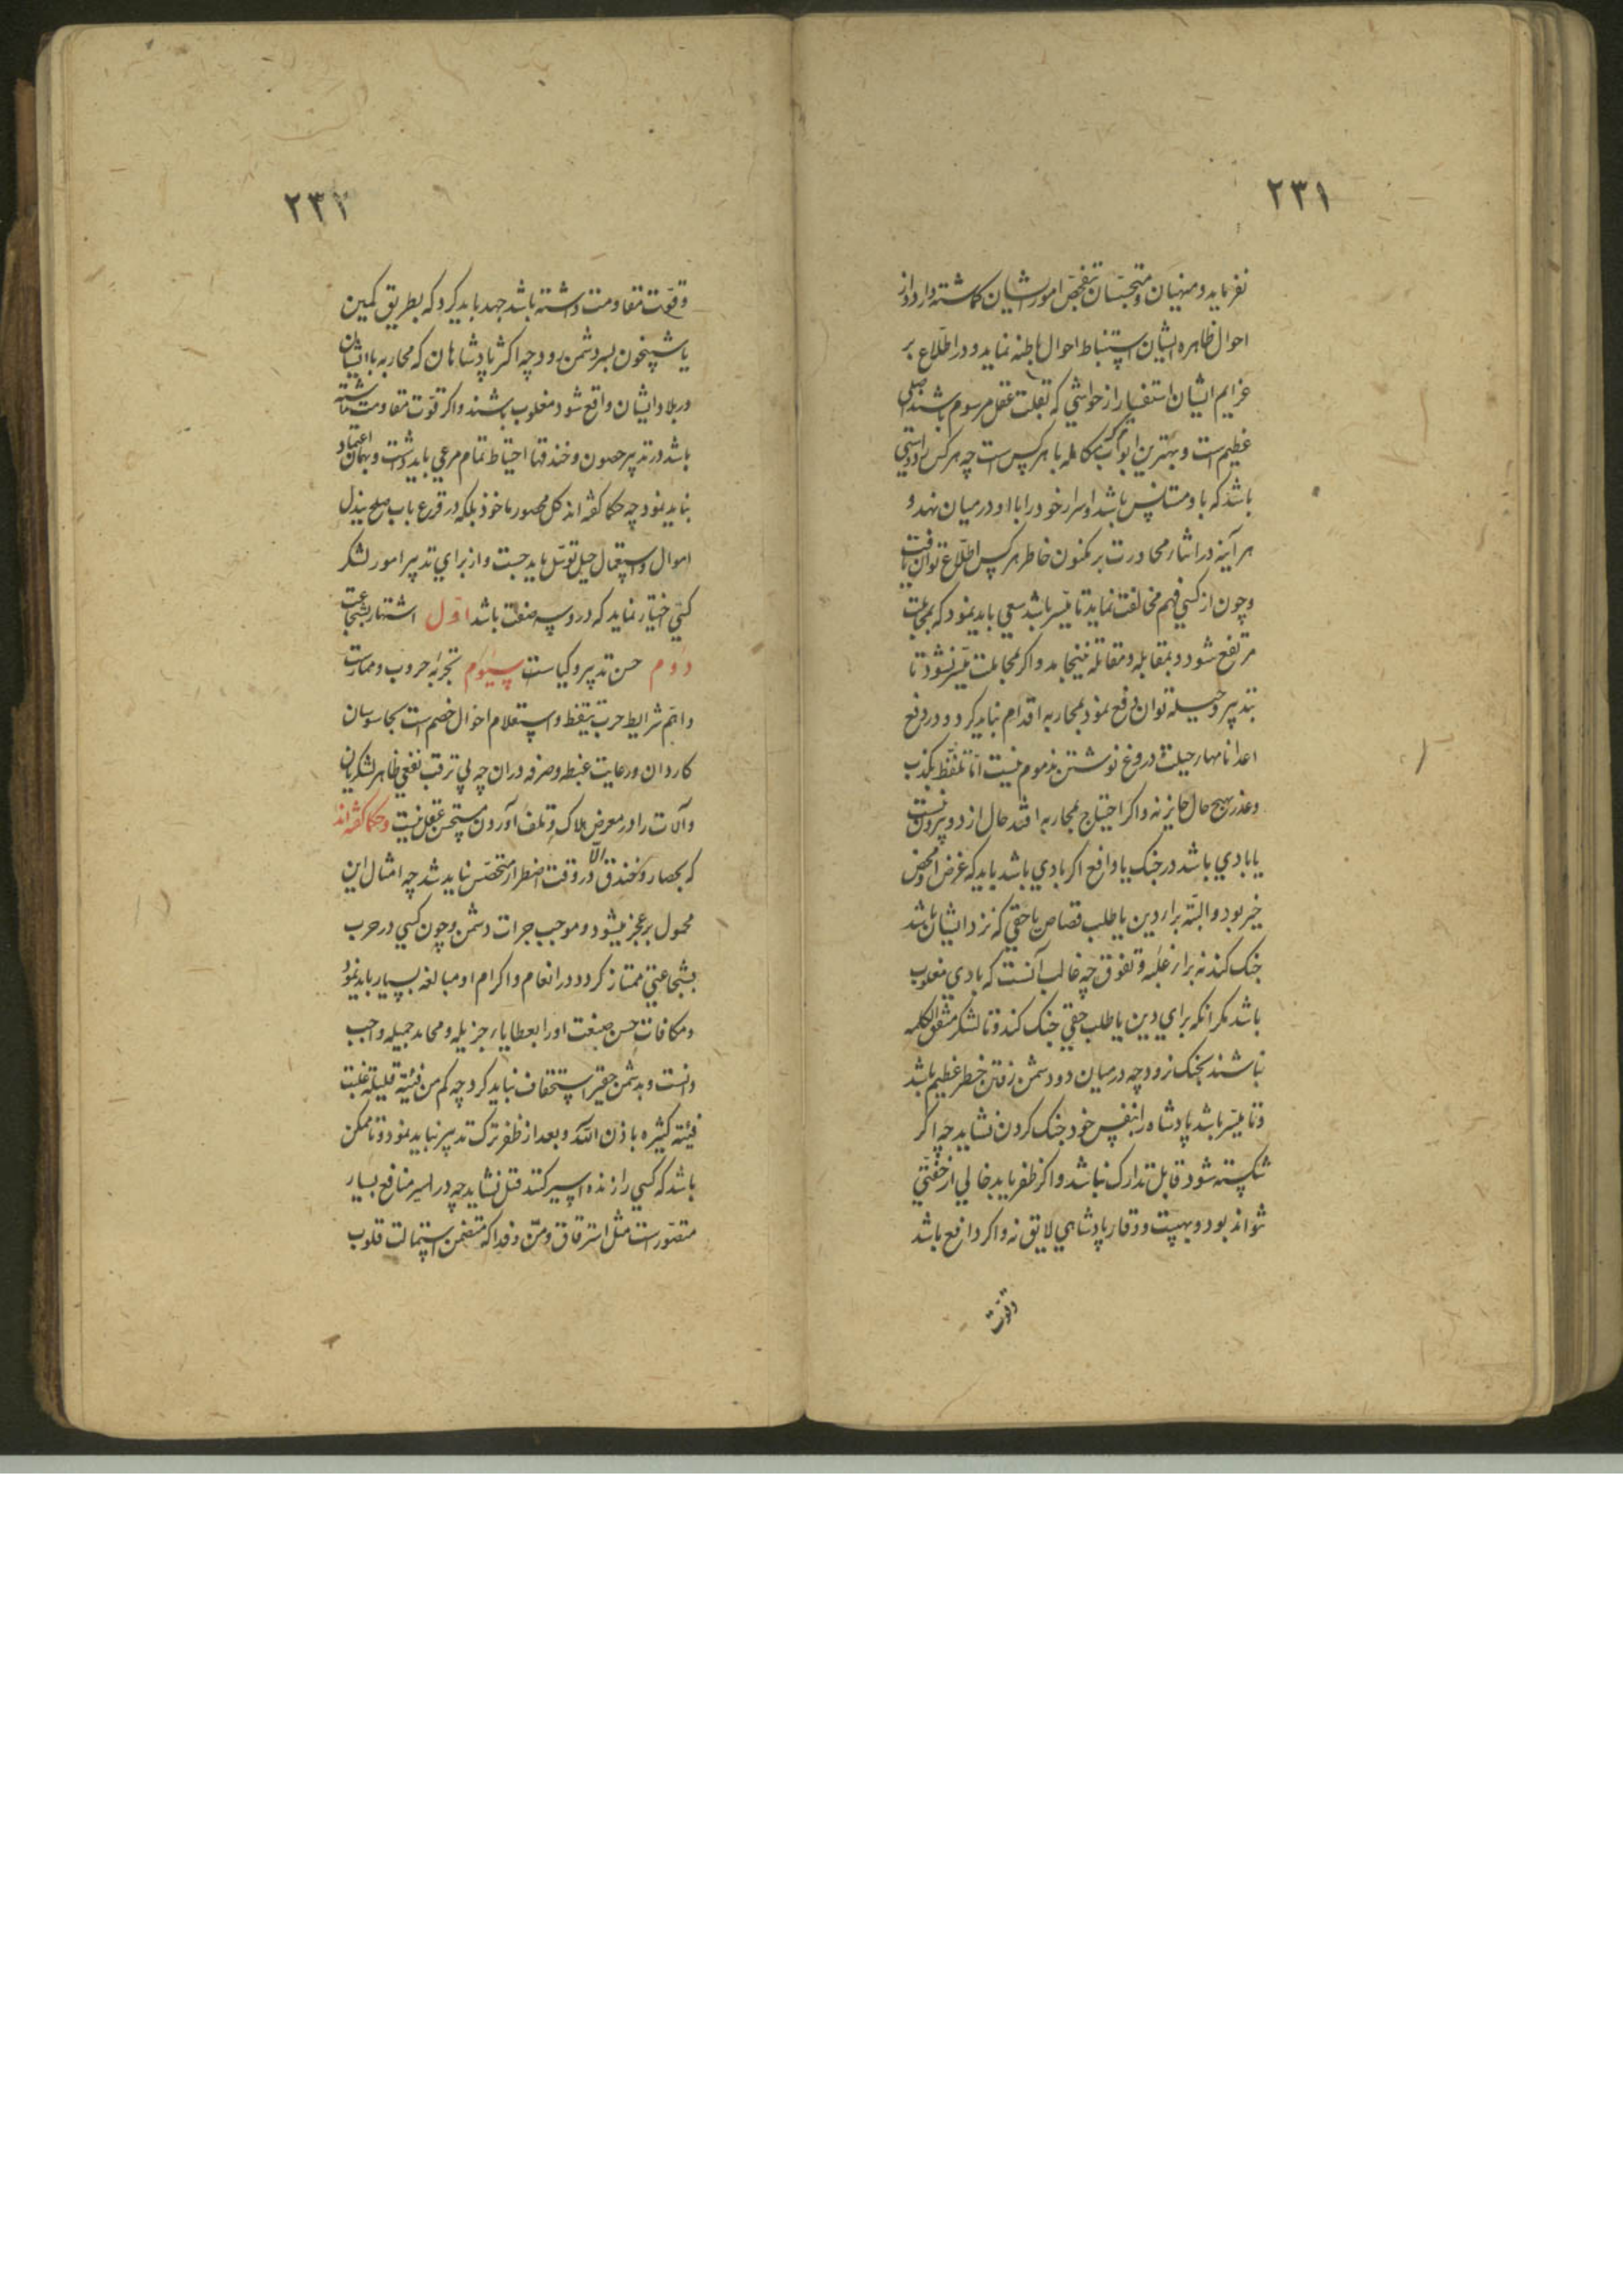 ٢٣١
نفرماید و منهیان و متجسّسان بتفحّص امور ایشان کماشته دارد و از
احوال ظاهره ایشان استنباط احوال باطنه نماید و در اطّلاع بر
عزایم ایشان استفسار از حواشی که بقلّت عقل مرسوم باشند اصلی
عظیم است و بهترین ابواب مکالمه با هر کس است چه هر کس را دوستی
باشد که با او مستانس باشد و اسرار خود را با او در میان نهد و
هر آینه در اثنار محاورت بر مکنون خاطر هر کس اطّلاع توان یافت
و چون از کسی فهم مخالفت نماید تا میّسر باشد سعی باید نمود که بمجاملت
مرتفع شود و بمقابله و مقاتله نینجامد و اکر بمجاملت میّسر نشود تا
بتدبیر و حیله توان دفع نمود بمحاربه اقدام نباید کرد و در دفع
اعدا باظهار حیلت و دروغ نوشتن مذموم نیست امّا تلفّظ بکذب
و عذر بهیچ حال جایز نه و اکر احتیاج بمحاربه افتد حال از دو بیرون نیست
یا بادی باشد در جنک یا دافع اکر بادی باشد باید که غرض او محض
خیر بود و البتّه برار دین یا طلب قصاص یا حقّی که نزد ایشان باشد
جنک کند نه برار غلبه و تفوّق چه غالب آنست که بادی مغلوب
باشد مکر انکه برای دین یا طلب حقّی جنک کند و تا لشکر متّفق الکلمه
نباشند بجنک نرود چه در میان دو دشمن رفتن خطر عظیم باشد
و تا میّسر باشد پادشاه را بنفس خود جنک کردن نشاید چه اکر
شکسته شود قابل تدارک نباشد و اکر ظفر یابد خالی از خفّتی
نتواند بود و بهیبت و وقار پادشاهی لایق نه و اکر دافع باشد
وقوّت
٢٣٢
و قوّت مقاومت داشته باشد جهد باید کرد که بطریق کمین
یا شبیخون بسر دشمن رود چه اکثر پادشاهان که محاربه با ایشان
در بلاد ایشان واقع شود مغلوب باشند و اکر قوّت مقاومت نداشته
باشد در تدبیر حصون و خندقها احتیاط تمام مرعی باید داشت و بهمان اعتماد
نباید نمود چه حکما کفته اند کل محصور ماخوذ بلکه در قرع باب صلح ببذل
اموال و استعمال حیل توسّل باید جست و از برای تدبیر امور لشکر
کسی اختیار نماید که در و سه صفت باشد اوّل اشتهار بشجاعت
دوم حسن تدبیر و کیاست سیوم تجربهٔ حروب و ممارست
و اهمّ شرایط حرب تیقّظ و استعلام احوال خصم است بجاسوسان
کاردان و رعایت غبطه و صرفه در ان چه بی ترقّب نفعی ظاهر لشکریان
و آلات را در معرض هلاک و تلف آوردن مستحسن عقل نیست و حکما کفته اند
که بحصار و خندق الّا در وقت اضطرار متحصّن نباید شد چه امثال این
محمول بر عجز میشود و موجب جرات دشمن و چون کسی در حرب
بشجاعتی ممتاز کردد در انعام و اکرام او مبالغه بسیار باید نمود
و مکافات حسن صنعت او را بعطایاء جزیله و محامد جمیله واجب
دانست و بدشمن حقیر استخفاف نباید کرد چه کم من فئته قلیلة غلبت
فئیته کثیره باذن اللّه و بعد از ظفر ترک تدبیر نباید نمود و تا ممکن
باشد که کسی را زنده اسیر کنند قتل نشاید چه در اسیر منافع بسیار
متصوّر است مثل استرقاق و منّ و فدا که متضمّن استمالت قلوب